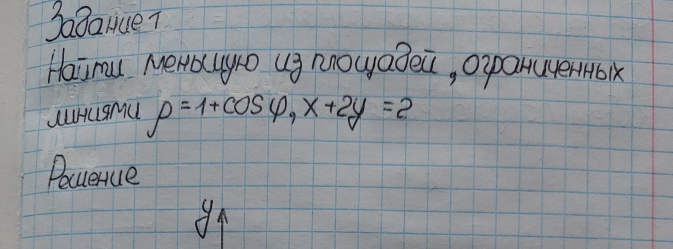 Задание 1
Найти меньшую из площадей, ограниченных
линиями ρ=1+cosφ, x+2y=2
Решение
y